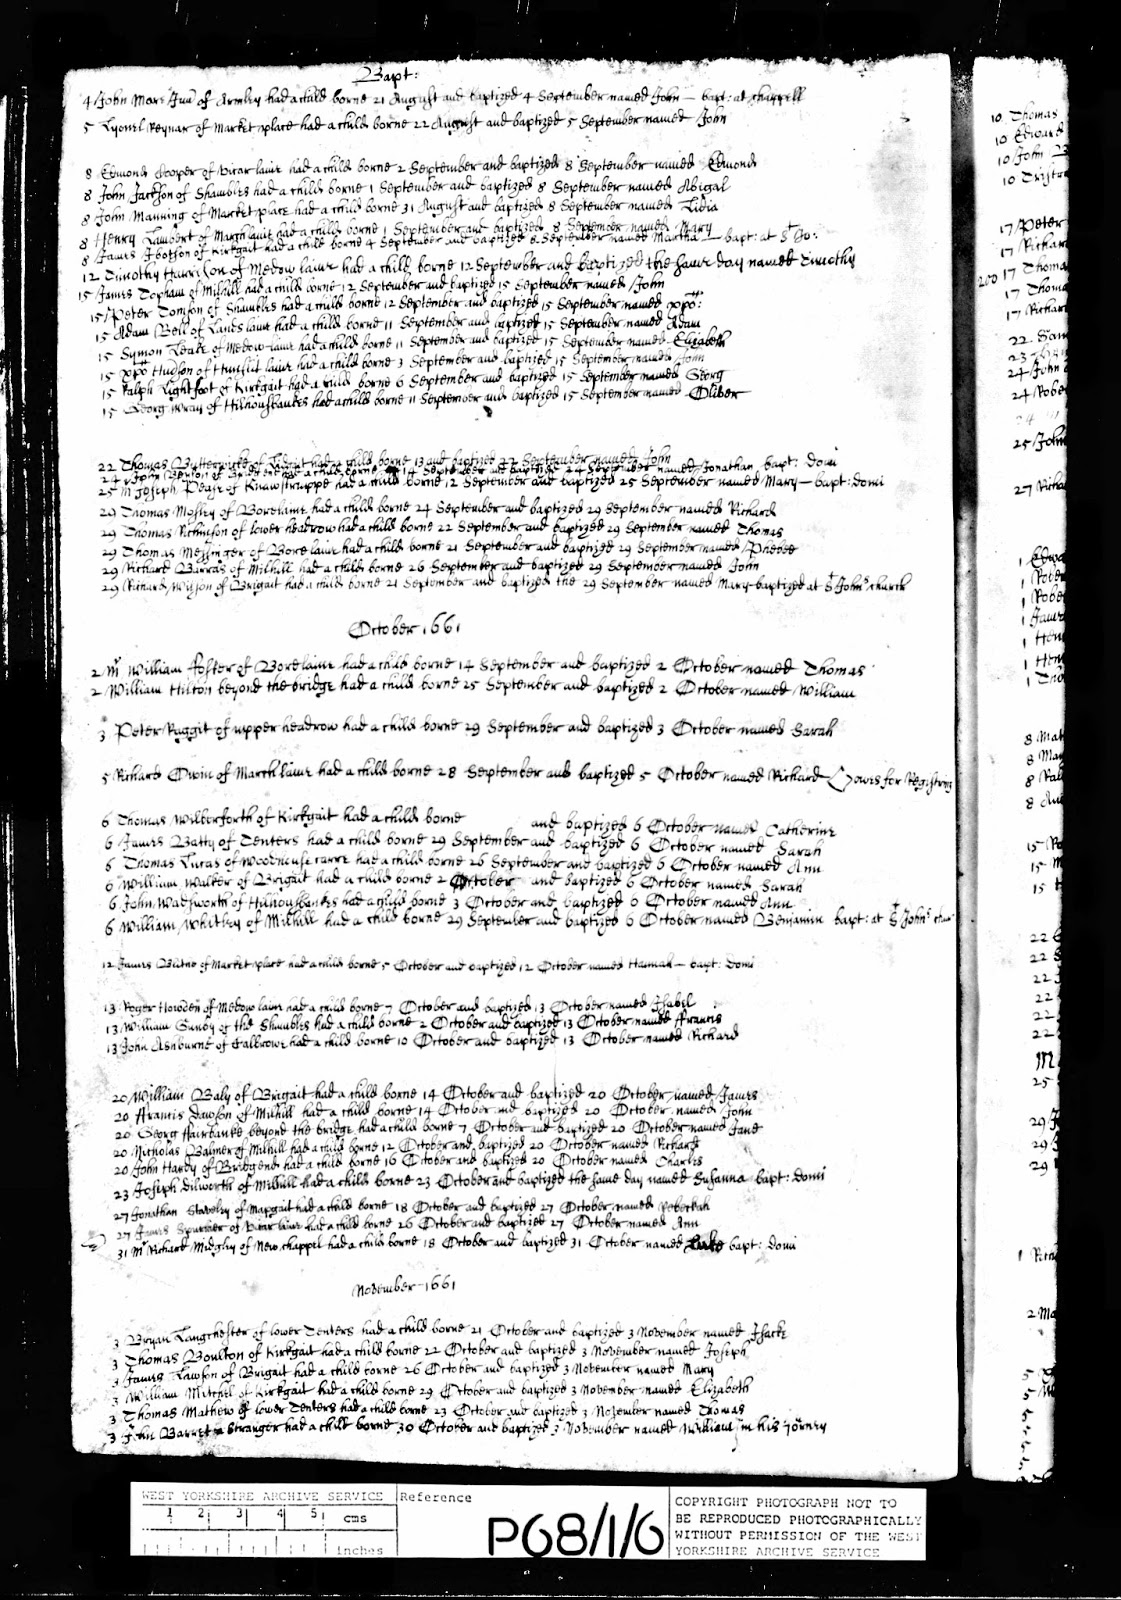 Bapt:
4 John More Junr of Armley had a child borne 21 August and baptized 4 September named John — bapt: at chappell
5 Lyonel Reynar of Market place had a child borne 22 August and baptized 5 September named John
8 Edmond Cooper of Vicar lane had a child borne 2 September and baptized 8 September named Edmond
8 John Jackson of Shambles had a child borne 1 September and baptized 8 September named Abigal
8 John Manning of Market place had a child borne 31 August and baptized 8 September named Lidia
8 Henry Lambert of Marsh lane had a child borne 1 September and baptized 8 September named Mary
8 James Ibotson of Kirkgait had a child borne 4 September and baptized 8 September named Martha — bapt: at St Jo:
12 Timothy of Medow lane had a child borne 12 September and baptized the same day named Timothy
15 James Topham of Milhill had a child borne 12 September and baptized 15 September named John
15 Peter Tomson of Shambles had a child borne 12 September and baptized 15 September named xpo:
15 Adam Bell of Lands lane had a child borne 11 September and baptized 15 September named Adam
15 Symon Leake of Medow lane had a child borne 11 September and baptized 15 September named Elizabeth
15 xpo Hudson of Hunslit lane had a child borne 3 September and baptized 15 September named John
15 Ralph Lightfoot of Kirkgait had a child borne 6 September and baptized 15 September named Georg
15 Georg Wray of Hilhousbankes had a child borne 11 September and baptized 15 September named Oliver
22 Thomas Butterwicke of had a child borne 13 and baptized 22 September named John
24 John of had a child borne 14 September and baptized 24 September named Jonathan bapt: domi
25 Mr Joseph Pease of Knawstruppe had a child borne 12 September and baptized 25 September named Mary — bapt: domi
29 Thomas Mosley of Borelane had a child borne 24 September and baptized 29 September named Richard
29 Thomas Richinson of lower headrow had a child borne 22 September and baptized 29 September named Thomas
29 Thomas Messinger of Bore lane had a child borne 21 September and baptized 29 September named Phebee
29 Richard Burras of Milhill had a child borne 26 September and baptized 29 September named John
29 Richard Wilson of Brigait had a child borne 21 September and baptized the 29 September named Mary baptized at St Johns church
October 1661
2 Mr William ffoster of Borelane had a child borne 14 September and baptized 2 October named Thomas
2 William Hilton beyond the bridge had a child borne 25 September and baptized 2 October named William
3 Peter Ruggit of upper headrow had a child borne 29 September and baptized 3 October named Sarah
5 Richard Owin of Marsh lane had a child borne 28 September and baptized 5 October named Richard owes for Registring
6 Thomas Wilberforth of Kirkgait had a child borne and baptized 6 October named Catherine
6 James Batty of Tenters had a child borne 29 September and baptized 6 October named Sarah
6 Thomas Lucas of Woodhouse carre had a child borne 26 September and baptized 6 October named Ann
6 William Walker of Brigait had a child borne 2 October and baptized 6 October named Sarah
6 John Wadsworth of Hilhousbankes had a child borne 3 October and baptized 6 October named Ann
6 William Whitley of Milhill had a child borne 29 September and baptized 6 October named Benjamin bapt: at St Johns
12 James of Market place had a child borne 5 October and baptized 12 October named Hannah — bapt: domi
13 Roger Howden of Medow lane had a child borne 7 October and baptized 13 October named Isabel
13 William Sunby of the Shambles had a child borne 2 October and baptized 13 October named ffrancis
13 John Ashburne of had a child borne 10 October and baptized 13 October named Richard
20 William Baly of Brigait had a child borne 14 October and baptized 20 October named James
20 ffrancis dawson of Milhill had a child borne 14 October and baptized 20 October named John
20 Georg ffairbanke beyond the bridge had a child borne 7 October and baptized 20 October named Jane
20 Nicholas Palmer of Milhill had a child borne 12 October and baptized 20 October named Richard
20 John Hardy of Bridgend had a child borne 16 October and baptized 20 October named Charles
23 Joseph dilworth of Milhill had a child borne 23 October and baptized the same day named Susanna bapt: domi
27 Jonathan Stavelay of Mapgait had a child borne 18 October and baptized 27 October named Rebeckah
27 James Spurrier of Vicar lane had a child borne 26 October and baptized 27 October named Ann
31 Mr Richard Midgley of New chappel had a child borne 18 October and baptized 31 October named Luke bapt: domi
November 1661
3 Bryan Langchester of lower Tenters had a child borne 21 October and baptized 3 November named Isacke
3 Thomas Boulton of Kirkgait had a child borne 22 October and baptized 3 November named Joseph
3 James Lawson of Brigait had a child borne 26 October and baptized 3 November named Mary
3 William Mitchel of Kirkgait had a child borne 29 October and baptized 3 November named Elizabeth
3 Thomas Mathew of lower Tenters had a child borne 23 October and baptized 3 November named Thomas
3 John Barret a stranger had a child borne 30 October and baptized 3 November named William in his jorney
10 Thomas
10 Edward
10 John
17 Peter
17 Richard
200 17 Thomas
17 Thomas
17 Richard
24 John
25 John
WEST YORKSHIRE ARCHIVE SERVICE
1 2 3 4 5 cms
inches
Reference
P68/1/6
COPYRIGHT PHOTOGRAPH NOT TO
BE REPRODUCED PHOTOGRAPHICALLY
WITHOUT PERMISSION OF THE WEST
YORKSHIRE ARCHIVE SERVICE